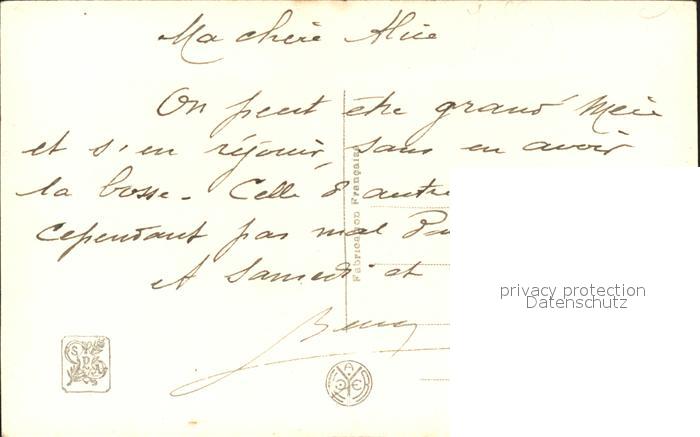 Ma chère Alice
On peut être grand' Mère
et s'en réjouir, sans en avoir
la bosse. Celle d'autre
cependant pas mal
et Samedi et
Fabrication Française
privacy protection
Datenschutz